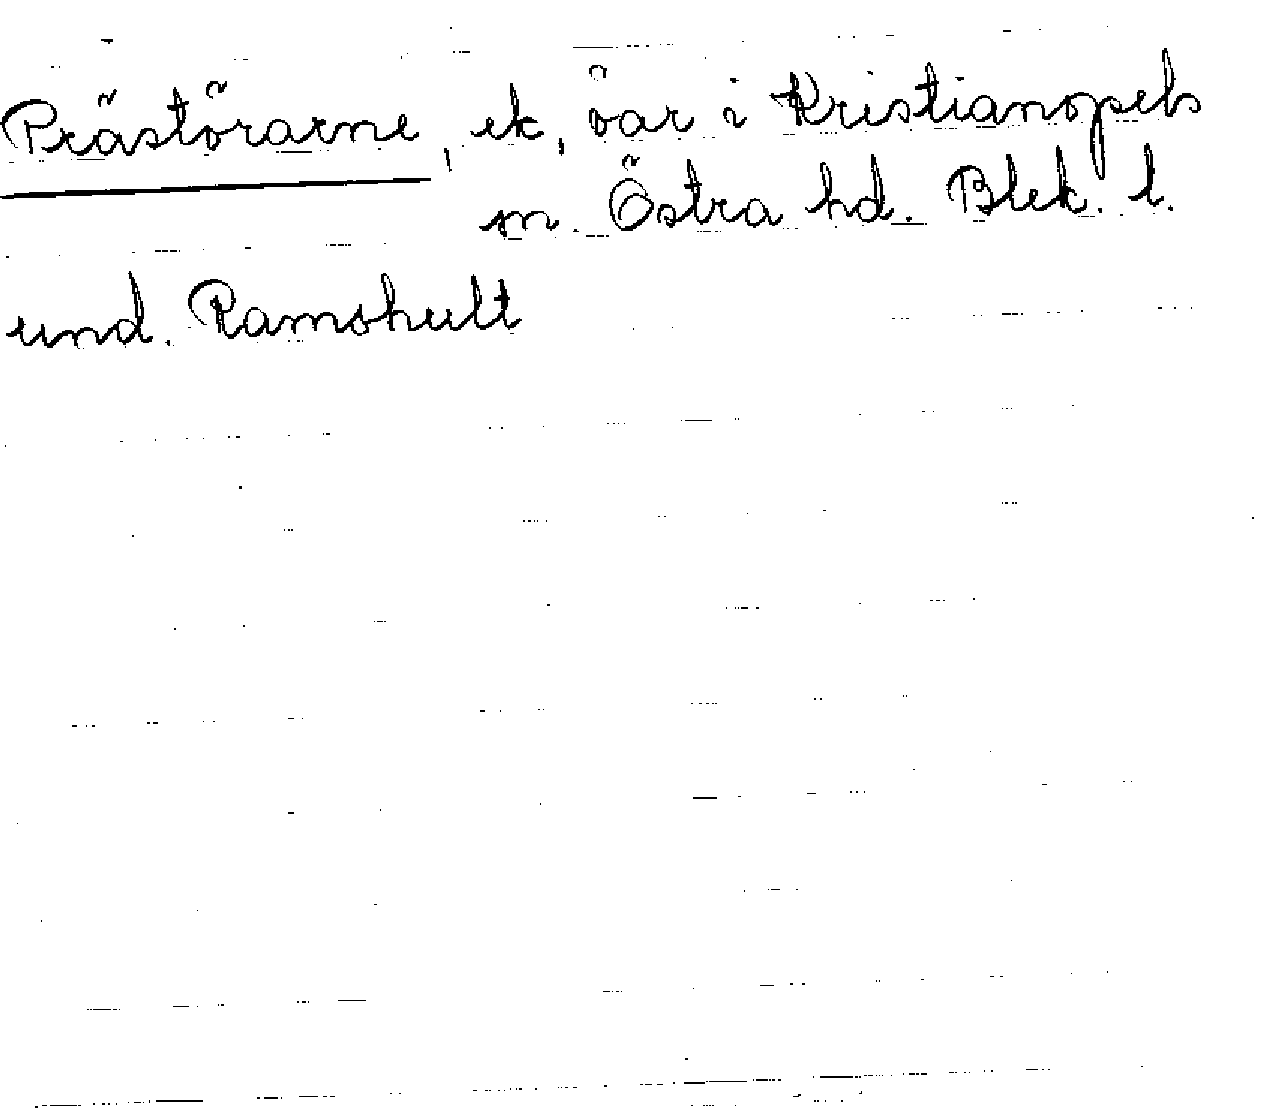 Prästörarne, ek, öar i Kristianopels
sn. Östra hd. Blek. l.
und. Ramshult